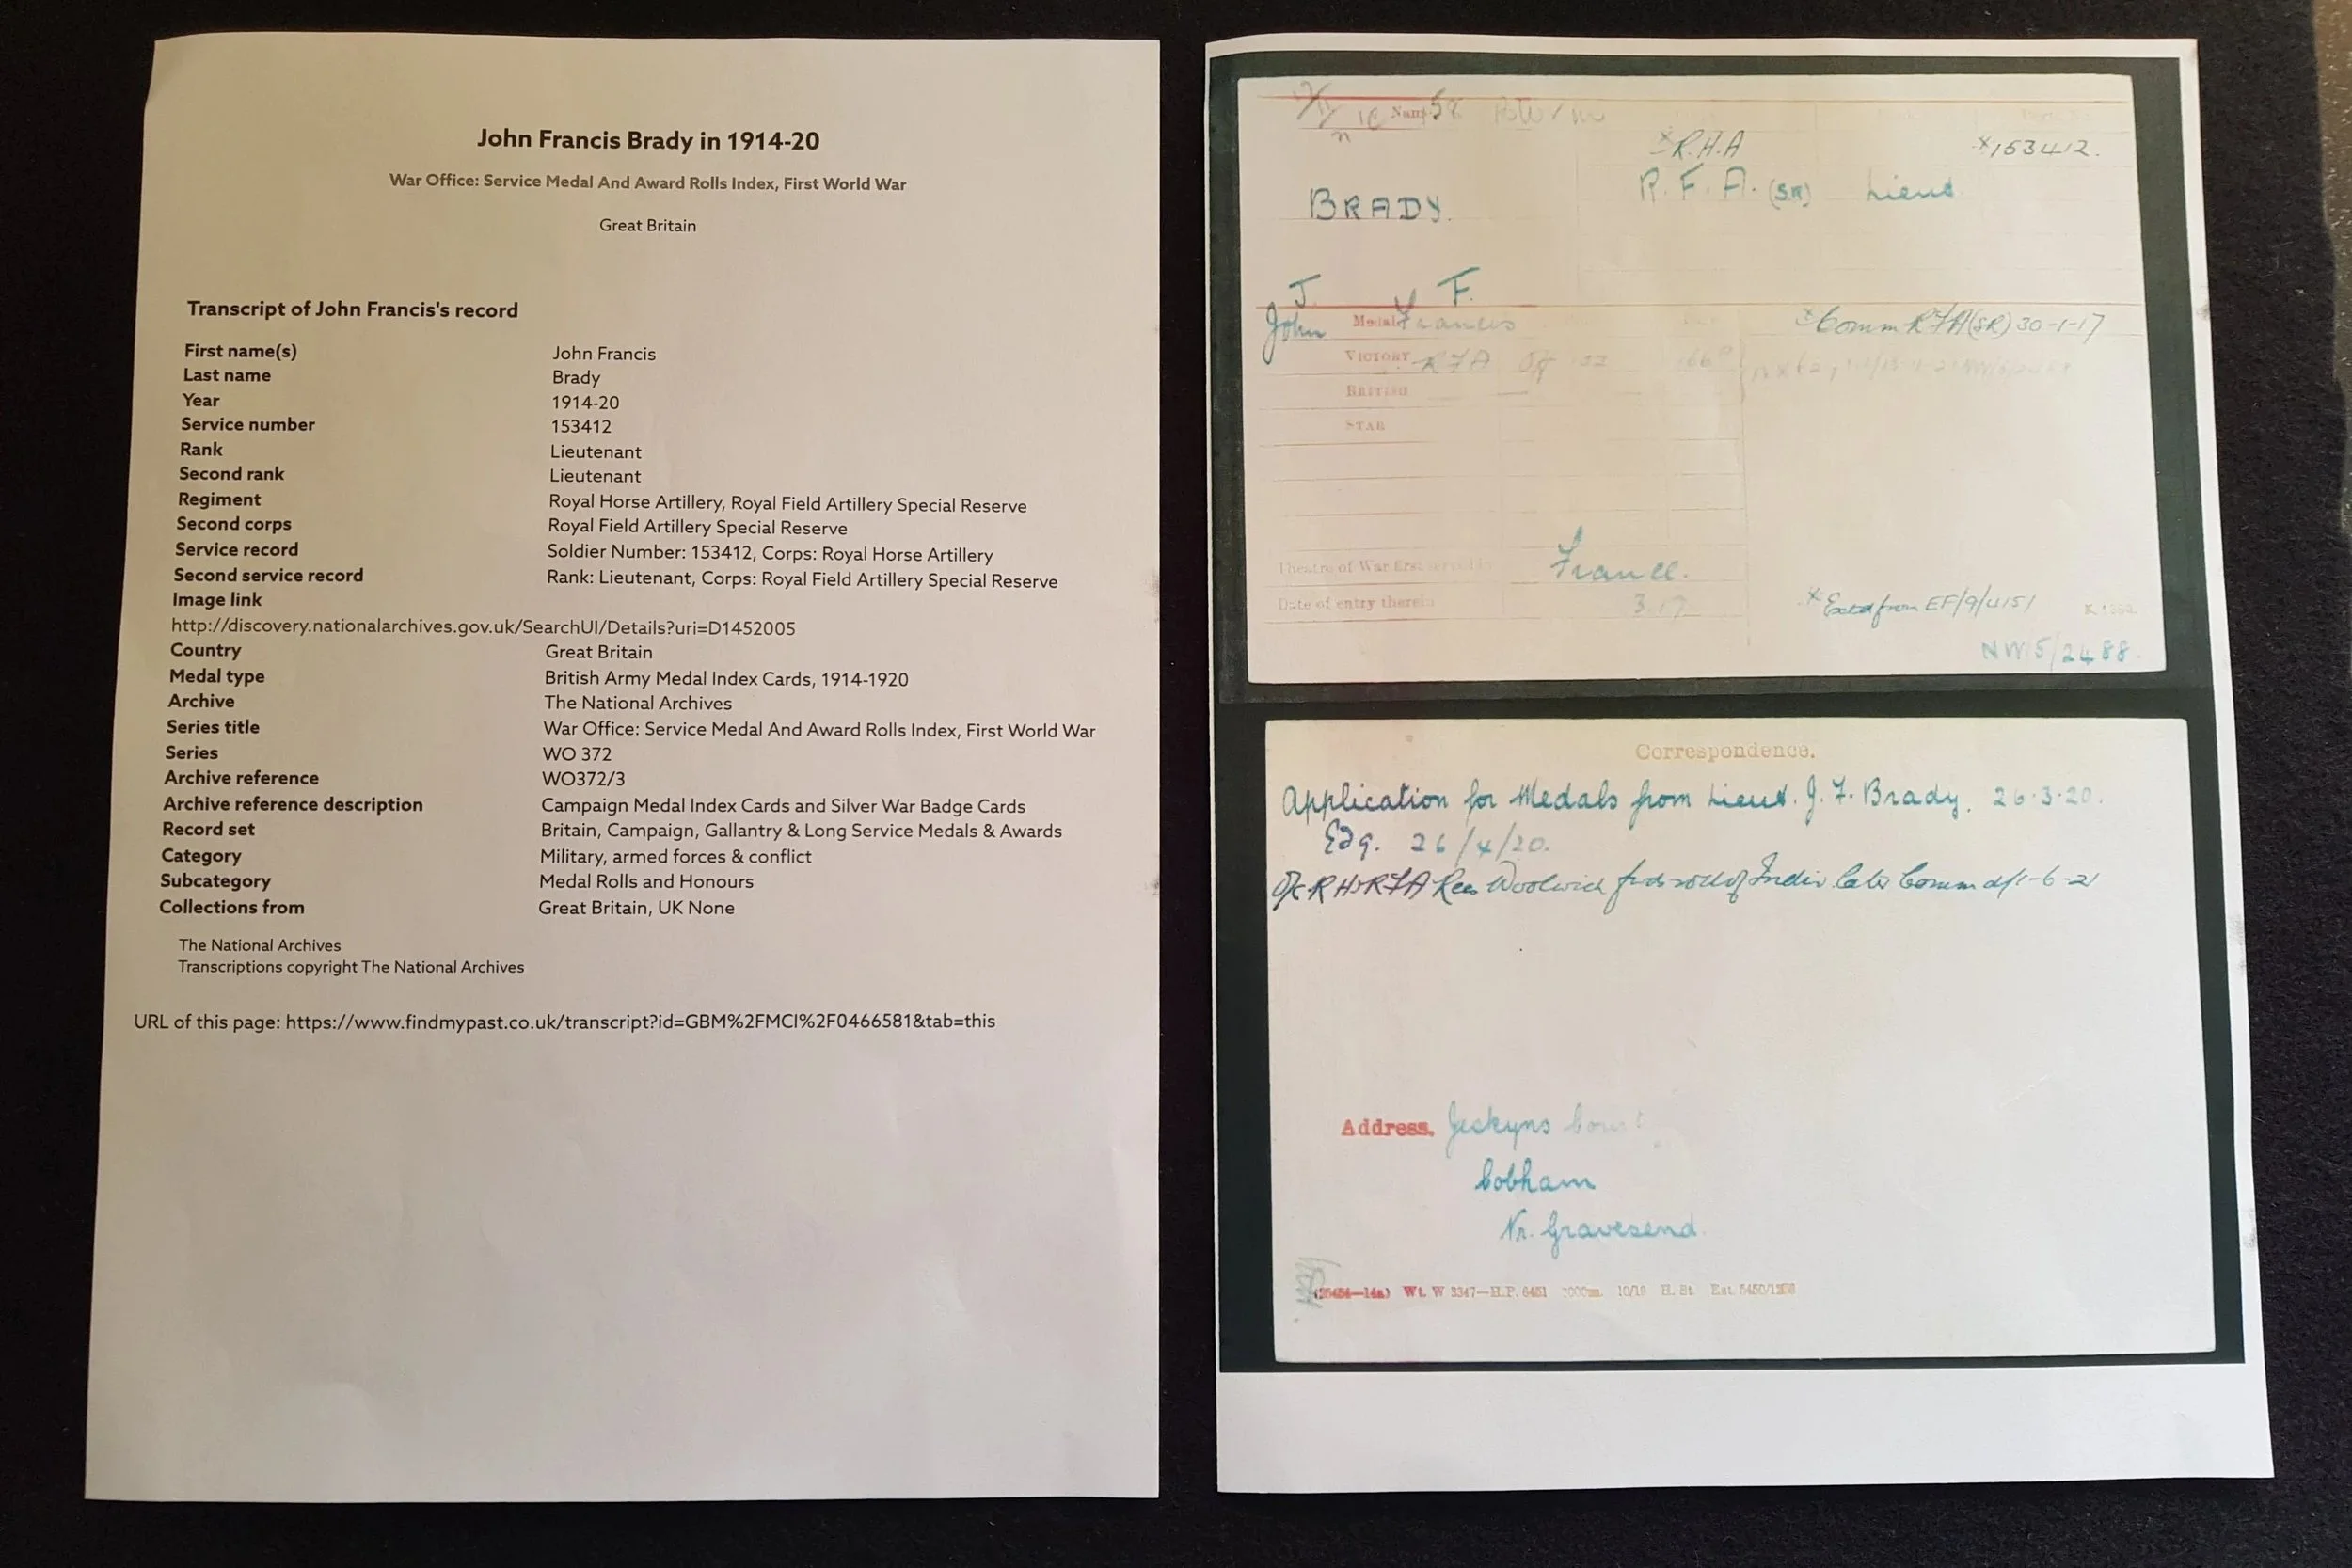 John Francis Brady in 1914-20
War Office: Service Medal And Award Rolls Index, First World War
Great Britain
Transcript of John Francis's record
First name(s) John Francis
Last name Brady
Year 1914-20
Service number 153412
Rank Lieutenant
Second rank Lieutenant
Regiment Royal Horse Artillery, Royal Field Artillery Special Reserve
Second corps Royal Field Artillery Special Reserve
Service record Soldier Number: 153412, Corps: Royal Horse Artillery
Second service record Rank: Lieutenant, Corps: Royal Field Artillery Special Reserve
Image link
http://discovery.nationalarchives.gov.uk/SearchUI/Details?uri=D1452005
Country Great Britain
Medal type British Army Medal Index Cards, 1914-1920
Archive The National Archives
Series title War Office: Service Medal And Award Rolls Index, First World War
Series WO 372
Archive reference WO372/3
Archive reference description Campaign Medal Index Cards and Silver War Badge Cards
Record set Britain, Campaign, Gallantry & Long Service Medals & Awards
Category Military, armed forces & conflict
Subcategory Medal Rolls and Honours
Collections from Great Britain, UK None
The National Archives
Transcriptions copyright The National Archives
URL of this page: https://www.findmypast.co.uk/transcript?id=GBM%2FMCI%2F0466581&tab=this
Name
*R.H.A *153412.
BRADY. R.F.A. (SR) Lieut
J. F.
John Medal Francis *Comm RFA(SR) 30-1-17
VICTORY RFA Off
BRITISH
STAR
Theatre of War first served in France.
Date of entry therein 3.17
EF/9/4151
NW/5/2488.
Correspondence.
Application for Medals from Lieut. J. F. Brady. 26.3.20.
26/4/20.
O/c RH&RFA Woolwich of Comm 1-6-21
Address. Jeskyns Court
Cobham
Nr. Gravesend.
Wt. W 3347—H.P. 6451 10/19 H. St